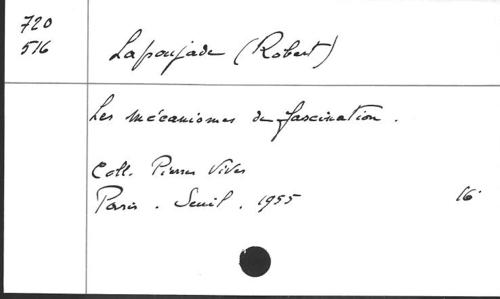 720
516
Lapoujade (Robert)
Les mécanismes de fascination.
Coll. Pierres Vives
Paris. Seuil. 1955 16°